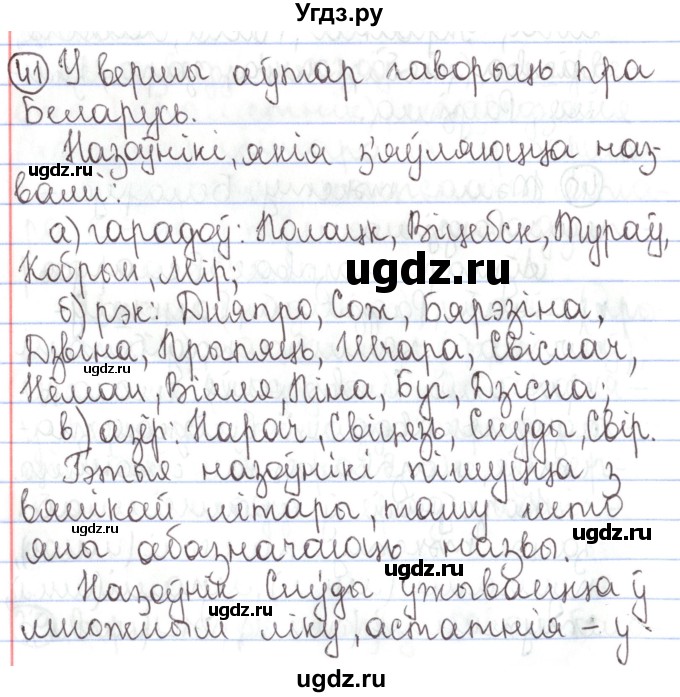 Угдз.ру
41 У вершы аўтар гаворыць пра
Беларусь.
Назоўнікі, якія з'яўляюцца наз-
вамі:
а) гарадоў: Полацк, Віцебск, Тураў,
Кобрын, Мір;
б) рэк: Дняпро, Сож, Бярэзіна,
Дзвіна, Прыпяць, Шчара, Свіслач,
Нёман, Вілля, Піна, Буг, Дзісна;
в) азёр: Нарач, Свіцязь, Снуды, Свір.
Гэтыя назоўнікі пішуцца з
вялікай літары, таму што
яны абазначаюць назвы.
Назоўнік Снуды ўжываецца ў
множным ліку, астатнія – у
ugdz.ru
ugdz.ru
ugdz.ru
ugdz.ru
ugdz.ru
ugdz.ru
ugdz.ru
ugdz.ru
ugdz.ru